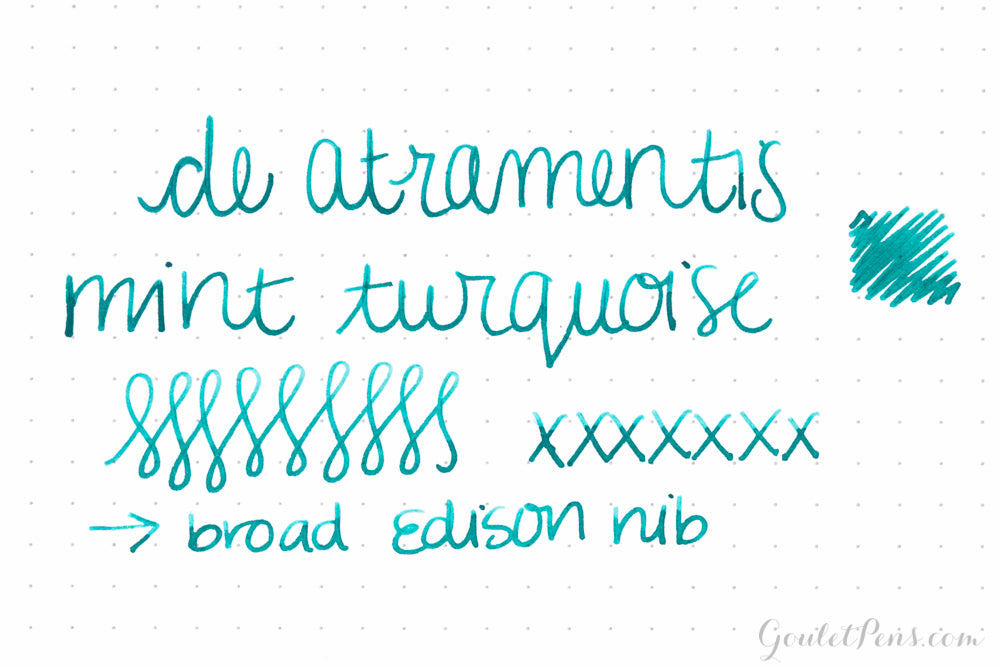 de atramentis
mint turquoise
xxxxxxx
→ broad Edison nib
GouletPens.com